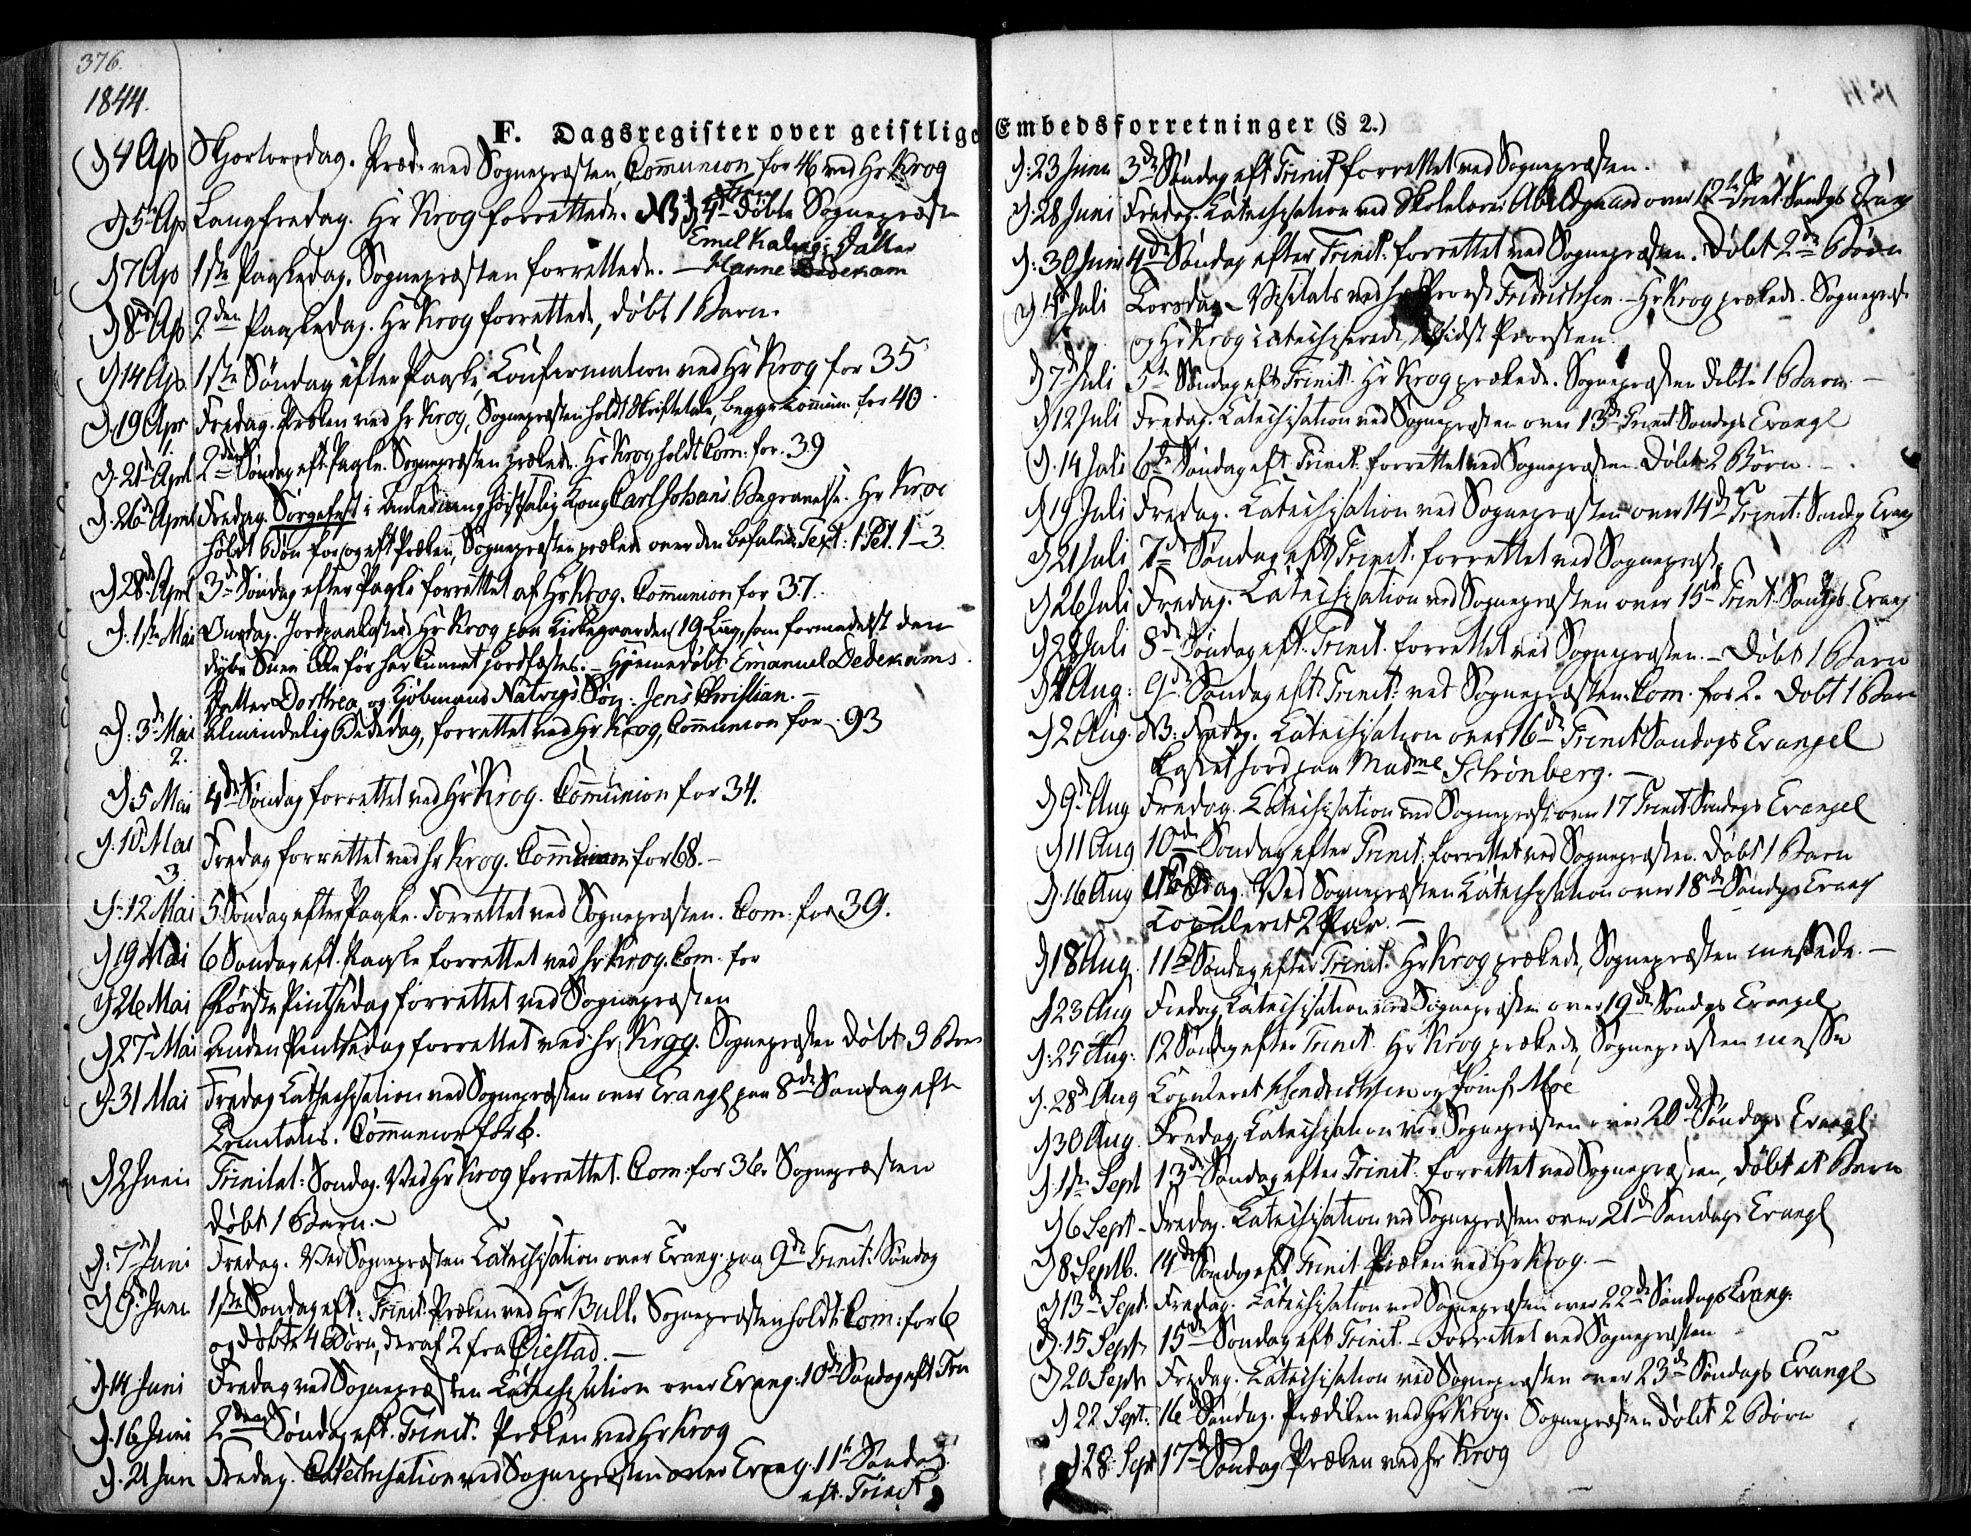 376.
1844.
F. Dagsregister over geistlige Embedsforretninger (§ 2.)
D 4 Ap Skjærtorsdag. Præd. ved Sognepræsten, Communion for 46 ved Hr Krog
D 5 Ap Langfredag. Hr Krog forrettede. NB D 4de Døbte Sognepræst
Emel Datter
D 7 Ap 1ste Paaskedag. Sognepræsten forrettede. — Hanne Dedekam
D 8 Ap 2den Paaskedag. Hr Krog forrettede, døbt 1 Barn.
D 14 Ap. 1ste Søndag efter Paaske, Confirmation ved Hr Krog for 35
D. 19 Apr Fredag. Præken ved Hr Krog, Sognepræsten holdt Skriftetale, begge commun. for 40.
D. 21de April 2den Søndag eft. Paaske. Sognepræsten prækede. Hr Krog holdt Com: for. 39
D. 26de April Fredag. Sørgefest i Anledning høistsalig Kong Carl Johans Begravelse. Hr Krog
holdt Bøn for og eft Præken, Sognepræsten præked over den befalede Text: 1 Pet. 1-3.
D 28de April 3de Søndag efter Paaske forrettet af Hr Krog. Communion for 37.
D. 1ste Mai Onsdag. Jordpaakastede Hr Krog paa Kirkegaarden 19 Liig, som formedelst den
dybe Snee ikke før har kunnet jordfæstes. — Hjemmedøbt Emanuel Dedekams
Datter Dorthea og Kjøbmand Natvigs Søn: Jens Christian. —
D: 3de Mai Almindelig Bededag, forrettet ved Hr Krog, Communion for 93
2.
D 5 Mai 4de Søndag forrettet ved Hr Krog. Communion for 34.
D. 10 Mai Fredag forrettet ved Hr Krog. Communion for 68. —
3
D: 12 Mai 5 Søndag efter Paaske. Forrettet ved Sognepræsten. Com: for 39.
D 19 Mai 6 Søndag eft. Paaske forrettet ved Hr Krog. Com. for
D 26 Mai Første Pintsedag forrettet ved Sognepræsten
D 27 Mai Anden Pintsedag forrettet ved Hr Krog. Sognepræsten døbt 3 Børn
D. 31 Mai Fredag Cathechisation ved Sognepræsten over Evangl. paa 8de Søndag eft
Trinitatis. Communion for 6.
D 2 Juni Trinitat: Søndag. Ved Hr Krog forrettet. Com: for 36. Sognepræsten
døbt 1 Barn. —
D. 7 Juni Fredag. Ved Sognepræsten Catechisation over Evang: paa 9de Trinit: Søndag
D 9de Juni 1ste Søndag eft: Trinit: Præken ved Hr Bull. Sognepræsten holdt Com: for 6
og døbte 4 Børn, deraf 2 fra Øiestad. —
D. 14 Juni Fredag ved Sognepræsten Catechisation over Evang. 10de Søndag eft Trin
D. 16 Juni 2den Søndag eft. Trinit: Præken ved Hr Krog
D. 21 Jun Fredag. Catechisation ved Sognepræsten over Evang. 11te Søndag
eft. Trinit
D: 23 Juni 3de Søndag eft Trinit forrettet ved Sognepræsten.
D: 28 Juni Fredag. Catechisation ved Skolelærer Abildgaard over 12te Trint. Søndgs Evang
D: 30 Juni 4de Søndag efter Trinit: forrettet ved Sognepræsten. Døbt 2de Børn
D 4de Juli Torsdag. Visitats ved Hr Provst Fredrichsen. — Hr Krog prækede. Sognepræst
og Hr Krog catechiserede, tilsidst Provsten
D 7de Juli 5te Søndag eft Trinit. Hr Krog prækede. Sognepræsten døbte 1 Barn —
D 12 Juli Fredag. Catechisation ved Sognepræsten over 13de Trinit Søndags Evangl
D. 14 Juli 6te Søndag eft Trinit. forrettet ved Sognepræsten. Døbt 2 Børn. —
D 19 Juli Fredag. Catechisation ved Sognepræsten over 14de Trinit: Søndg Evang
D 21 Juli 7de Søndag eft Trinit. forrettet ved Sognepræst.
D 26 Juli Fredag. Catechisation ved Sognepræsten over 15de Trinit: Søndgs Evang
D 28 Juli 8de Søndag eft. Trinit. forrettet ved Sognepræsten. — Døbt 1 Barn
D 4 Aug: 9de Søndag eft. Trinit: ved Sognepræsten. Com. for 2. Døbt 1 Barn
D 2 Aug. NB: Fredag. Catechisation over 16de Trinit Søndags Evangel
Kastet Jord paa Madme Schrønberg. —
D 9de Aug Fredag. Catechisation ved Sognepræst. over 17 Trinit Søndags Evangel
D 11 Aug 10de Søndag efter Trinit. forrettet ved Sognepræsten. Døbt 1 Barn
D. 16 Aug Fredag. Ved Sognepræsten Catechisation over 18de Søndgs Evang
Copuleret 2 Par. —
D 18 Aug. 11te Søndag efter Trinit. Hr Krog prækede, Sognepræsten messede. —
D 23 Aug Fredag Catechisation ved Sognepræsten over 19de Søndgs Evangel
D: 25 Aug: 12 Søndag efter Trinit. Hr Krog prækede, Sognepræsten messe
D. 28de Aug Copuleret Hendrichsen og Jomf. Moe
D 30 Aug. Fredag Catechisation ved Sognepræsten over 20de Søndags Evangl:
D. 1ste Sept 13de Søndag efter Trinit. forrettet ved Sognepræsten, døbt et Barn
D 6 Sept — Fredag. Catechisation ved Sognepræsten over 21de Søndags Evangl
D 8 Septb. 14de Søndag eft Trinit Præken ved Hr Krog. —
D 13de Sept: Fredag. Catechisation ved Sognepræsten over 22de Søndags Evang:
D. 15 Sept. 15de Søndag eft Trinit. — Forrettet ved Sognepræsten
D 20 Sept. Fredag. Catechisation ved Sognepræsten over 23de Søndags Evangl
D 22 Sept. 16de Søndag. Prædiken ved Hr Krog. Sognepræsten døbt 2 Børn
D 28 Sept 17de Søndag Præken ved Hr Krog